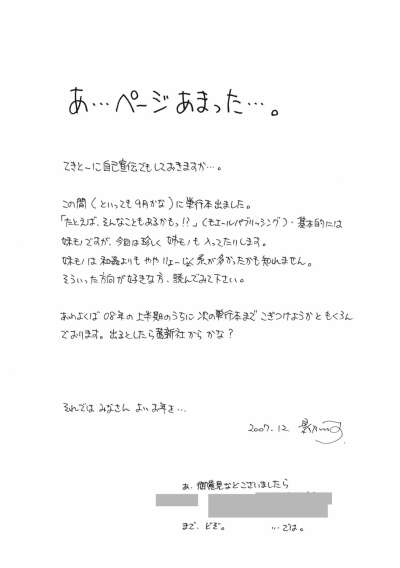 あ…ページあまった…。
てきとーに自己宣伝でもしておきますか…。
この間(といっても9月かな)に単行本出ました。
「たとえば、そんなこともあるかもっ!?」(モエールパブリッシング)・基本的には
妹モノですが、今回は珍しく姉モノも入ってたりします。
妹モノは和姦よりもややりょーじょく系が多かったかも知れません。
そういった方向が好きな方、読んでみて下さい。
あわよくば08年の上半期のうちに次の単行本までこぎつけようかともくろん
でおります。出るとしたら蒼新社からかな?
それではみなさんよいお年を…
2007.12
あ、御意見などございましたら
まで、どぞ。 …では。